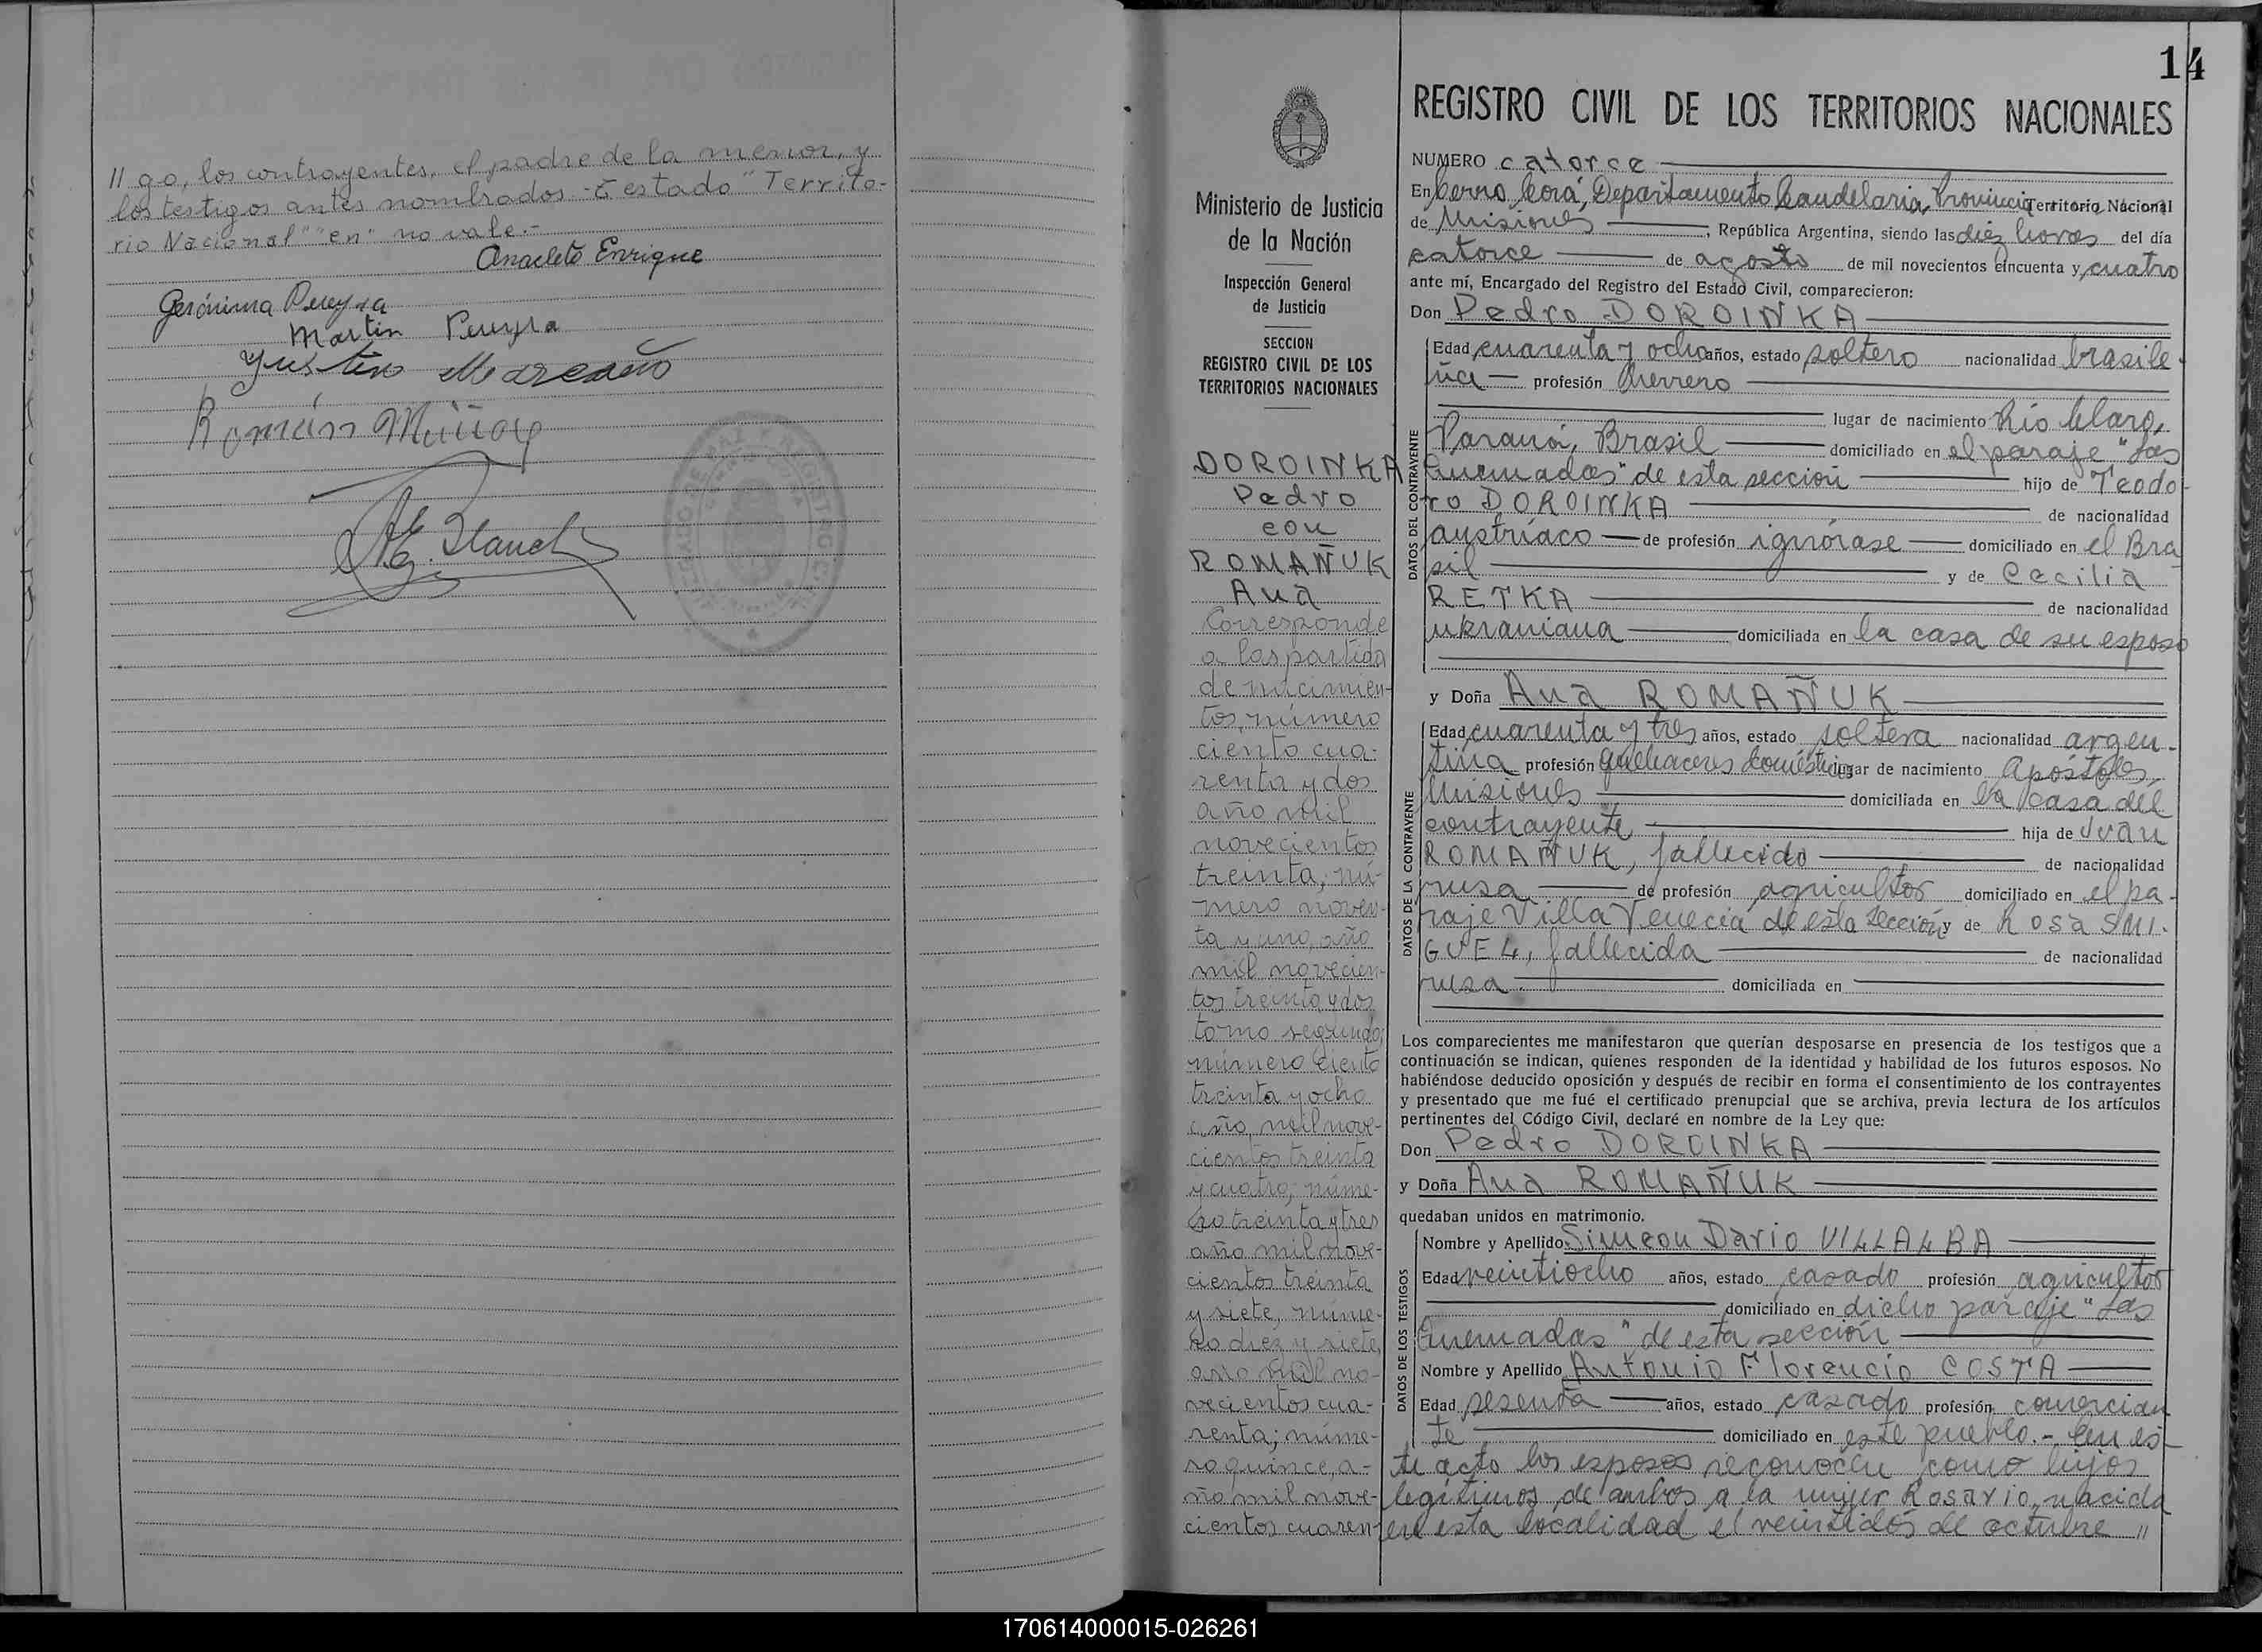 // go, los contrayentes, el padre de la menor, y
los testigos antes nombrados.- Testado "Territo-
rio Nacional" "en" no vale.-
Anacleto Enrique
Gerónima Pereyra
Martin Pereyra
Román
14
REGISTRO CIVIL DE LOS TERRITORIOS NACIONALES
Ministerio de Justicia
de la Nación
Inspección General
de Justicia
SECCION
REGISTRO CIVIL DE LOS
TERRITORIOS NACIONALES
DOROINKA
Pedro
con
ROMAÑUK
Ana
Corresponde
a las partida
de nacimien-
tos número
ciento cua-
renta y dos
año mil
novecientos
treinta; nú-
mero noven-
ta y uno, año
mil novecien-
tos treinta y dos
tomo segundo;
número ciento
treinta y ocho
año mil nove-
cientos treinta
y cuatro; núme-
ro treinta y tres
año mil nove-
cientos treinta
y siete, núme-
ro diez y siete,
año mil no-
vecientos cua-
renta; núme-
ro quince, a-
ño mil nove-
cientos cuaren-
NUMERO catorce
En Cerro Corá, Departamento Candelaria, Provincia Territorio Nacional
de Misiones, República Argentina, siendo las diez horas del día
catorce de agosto de mil novecientos cincuenta y cuatro
ante mí, Encargado del Registro del Estado Civil, comparecieron:
Don Pedro DOROINKA
DATOS DEL CONTRAYENTE
Edad cuarenta y ocho años, estado soltero nacionalidad brasile-
ña profesión herrero
lugar de nacimiento Río Claro,
Paraná, Brasil domiciliado en el paraje "Las
Quemadas" de esta sección hijo de Teodo-
ro DOROINKA de nacionalidad
austríaco de profesión ignórase domiciliado en el Bra
sil y de Cecilia
RETKA de nacionalidad
ukraniana domiciliada en la casa de su esposo
y Doña Ana ROMAÑUK
DATOS DE LA CONTRAYENTE
Edad cuarenta y tres años, estado soltera nacionalidad argen-
tina profesión quehaceres domésticos lugar de nacimiento Apóstoles,
Misiones domiciliada en la casa del
contrayente hija de Iván
ROMAÑUK, fallecido de nacionalidad
rusa de profesión agricultor domiciliado en el pa-
raje Villa Venecia de esta sección y de Rosa SMI-
GUEL, fallecida de nacionalidad
rusa. domiciliada en
Los comparecientes me manifestaron que querían desposarse en presencia de los testigos que a
continuación se indican, quienes responden de la identidad y habilidad de los futuros esposos. No
habiéndose deducido oposición y después de recibir en forma el consentimiento de los contrayentes
y presentado que me fué el certificado prenupcial que se archiva, previa lectura de los artículos
pertinentes del Código Civil, declaré en nombre de la Ley que:
Don Pedro DOROINKA
y Doña Ana ROMAÑUK
quedaban unidos en matrimonio.
DATOS DE LOS TESTIGOS
Nombre y Apellido Simeon Dario VILLALBA
Edad veintiocho años, estado casado profesión agricultor
domiciliado en dicho paraje "Las
Quemadas" de esta sección
Nombre y Apellido Antonio Florencio COSTA
Edad sesenta años, estado casado profesión comercian
te domiciliado en este pueblo.- En es-
te acto los esposos reconocen como hijos
legítimos de ambos a la mujer Rosario, nacida
en esta localidad el veintidós de octubre //
170614000015-026261